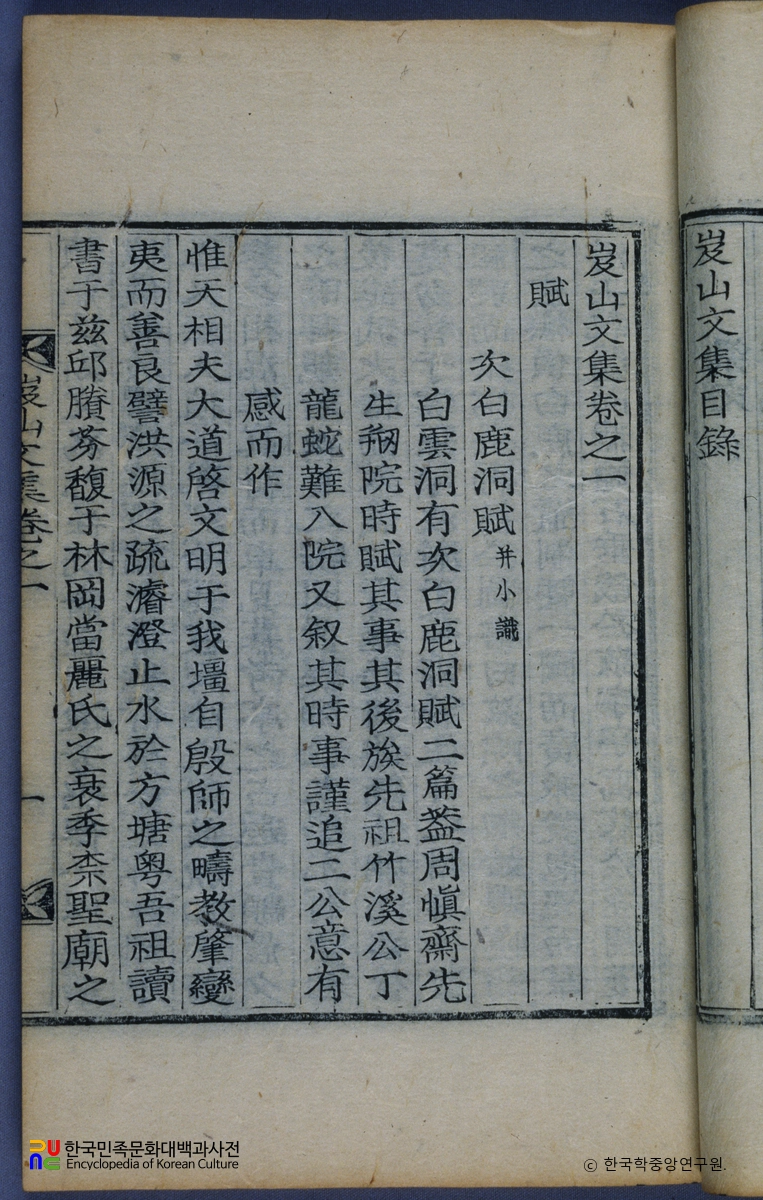 岌山文集目錄
岌山文集卷之一
賦
次白鹿洞賦 并小識
白雲洞有次白鹿洞賦二篇葢周愼齋先
生刱院時賦其事其後族先祖竹溪公丁
龍蛇難入院又叙其時事謹追二公意有
感而作
惟天相夫大道啓文明于我壃自殷師之疇教肇變
夷而善良譬洪源之疏濬澄止水於方塘粤吾祖讀
書于兹邱賸芬馥于林岡當麗氏之衰季柰聖廟之
岌山文集卷之一 一
한국민족문화대백과사전
Encyclopedia of Korean Culture
ⓒ 한국학중앙연구원.